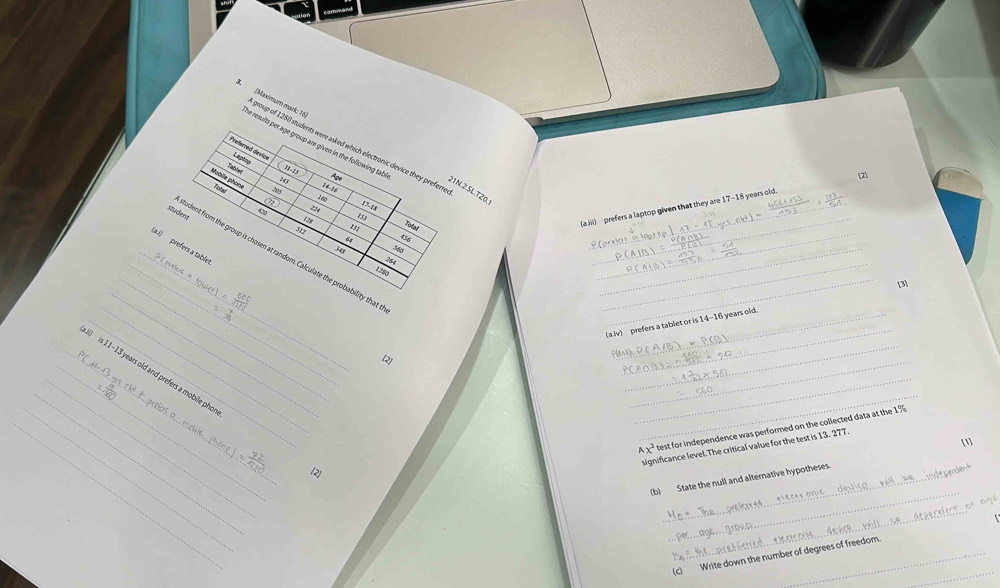 shift
option
command
3.
[Maximum mark: 16]
A group of 1280 students were asked which electronic device they preferred.
The results per age group are given in the following table.
21N.2.SL.TZ0.1
Age
Preferred device 11–13 14–16 17–18 Total
Laptop 143 160 153 456
Tablet 205 224 131 560
Mobile phone 72 128 64 264
Total 420 512 348 1280
A student from the group is chosen at random. Calculate the probability that the
student
(a.i) prefers a tablet.
[2]
P(prefers a tablet) =
=
(a.ii) is 11–13 years old and prefers a mobile phone.
[2]
P(11-13 yrs old & prefers a mobile phone) =
=
(a.iii) prefers a laptop given that they are 17–18 years old.
[2]
P(prefers a laptop | 17 - 18 yrs old) =
P(A|B) = P(A∩B) / P(B)
(a.iv) prefers a tablet or is 14–16 years old.
[3]
P(A|B) × P(B)
× 512
= 560
A χ² test for independence was performed on the collected data at the 1%
significance level. The critical value for the test is 13.277.
(b) State the null and alternative hypotheses.
[1]
H₀ = The preferred electronic device will be independent
per age group
the preferred electronic device will be dependent of age
(c) Write down the number of degrees of freedom.